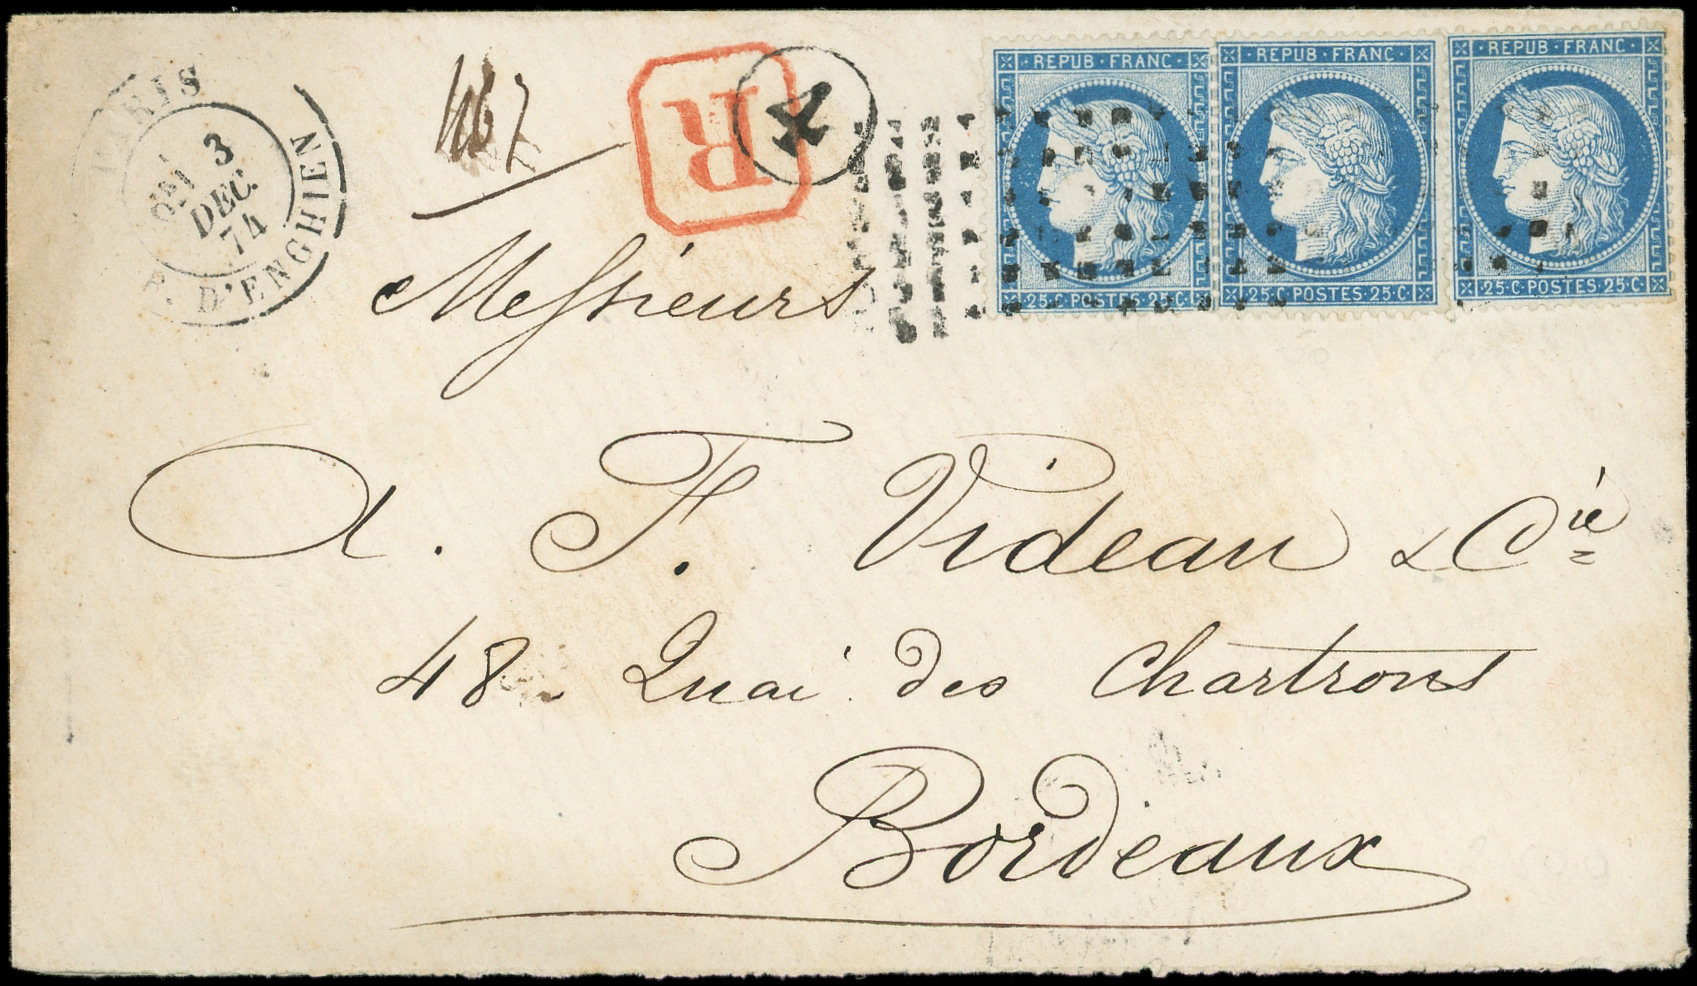 PARIS
3
DEC.
74
R. D'ENGHIEN
R
4
REPUB·FRANC·
25·C·POSTES·25·C
REPUB·FRANC·
25·C·POSTES·25·C
REPUB·FRANC·
25·C·POSTES·25·C
Messieurs
A. F. Videau & Cie
48 Quai des Chartrons
Bordeaux